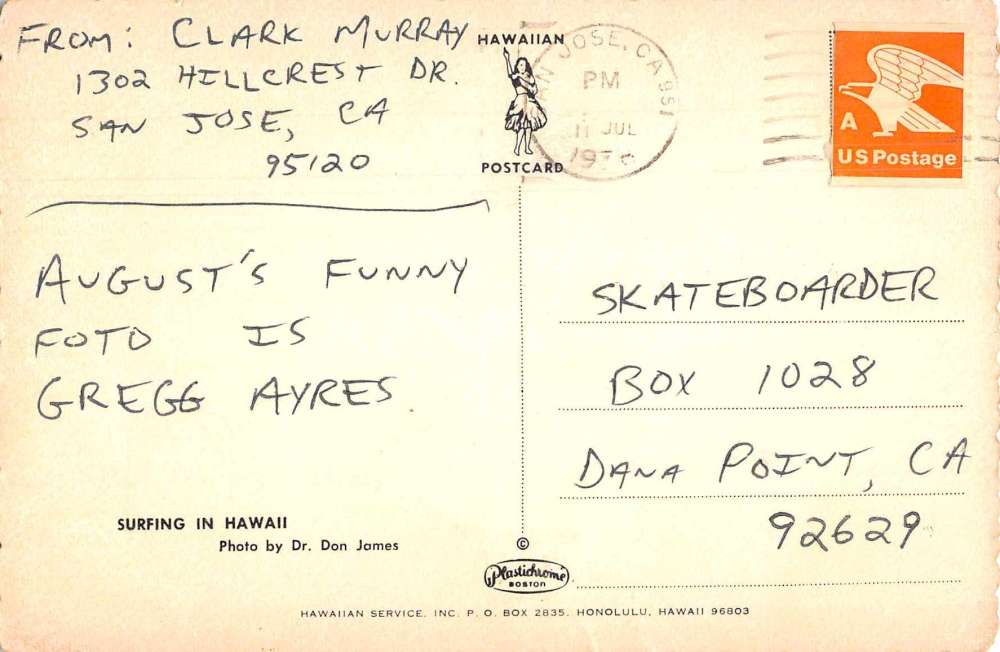 FROM: CLARK MURRAY
1302 HILLCREST DR.
SAN JOSE, CA
95120
HAWAIIAN
POSTCARD
SAN JOSE, CA 951
PM
11 JUL
A
US Postage
AUGUST'S FUNNY
FOTO IS
GREGG AYRES
SKATEBOARDER
BOX 1028
DANA POINT, CA
92629
SURFING IN HAWAII
Photo by Dr. Don James
©
Plastichrome
BOSTON
HAWAIIAN SERVICE, INC. P. O. BOX 2835, HONOLULU, HAWAII 96803